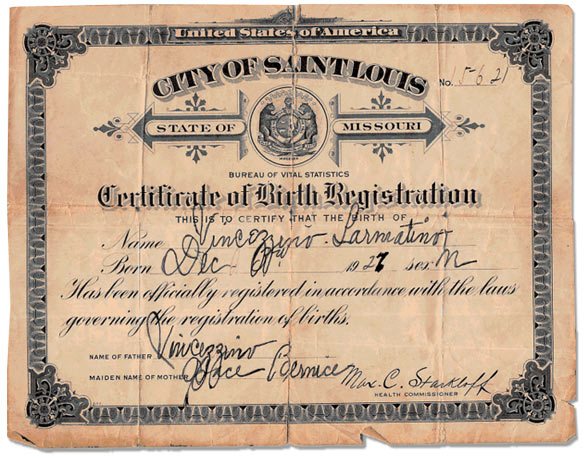 United States of America
CITY OF SAINT LOUIS
No. 15621
STATE OF MISSOURI
BUREAU OF VITAL STATISTICS
Certificate of Birth Registration
THIS IS TO CERTIFY THAT THE BIRTH OF
Name Vincezzino Sarmatino
Born Dec 1927 sex M
Has been officially registered in accordance with the laws
governing the registration of births.
NAME OF FATHER Vincezzino
MAIDEN NAME OF MOTHER Bernice
Max. C. Starkloff
HEALTH COMMISSIONER